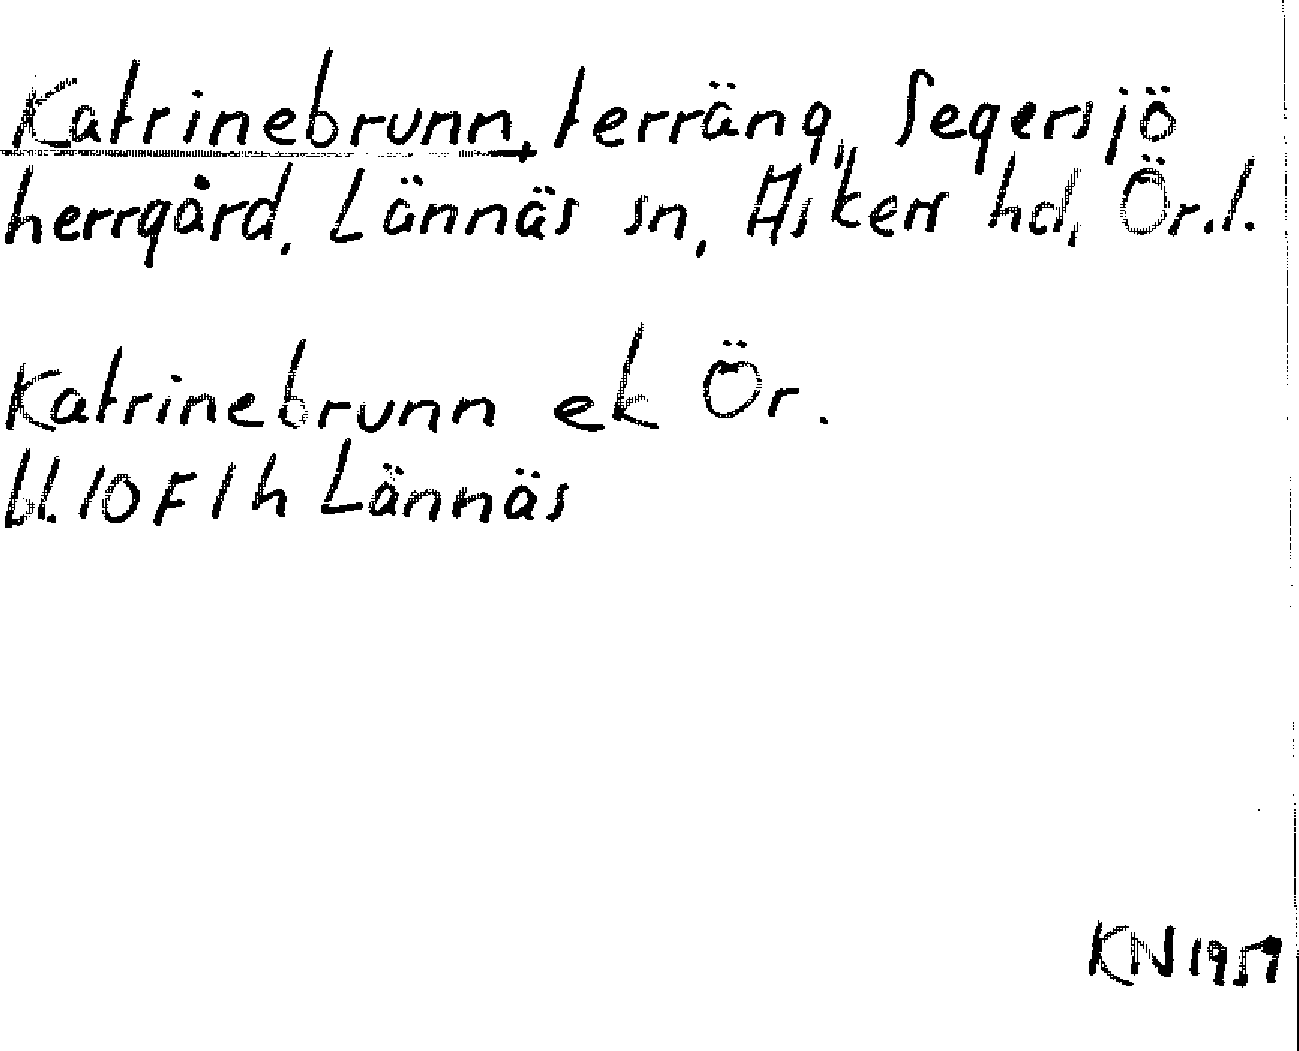 Katrinebrunn, terräng, Segersjö
herrgård, Lännäs sn, Askers hd, Ör. l.
Katrinebrunn ek Ör.
bl. 10 F 1 h Lännäs
KN 1959